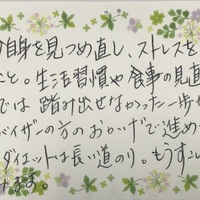 自身を見つめ直し、ストレスを
こと。生活習慣や食事の見直
では踏み出せなかった一歩が
バイザーの方のおかげで進め
ダイエットは長い道のり。もうすこし
ります。